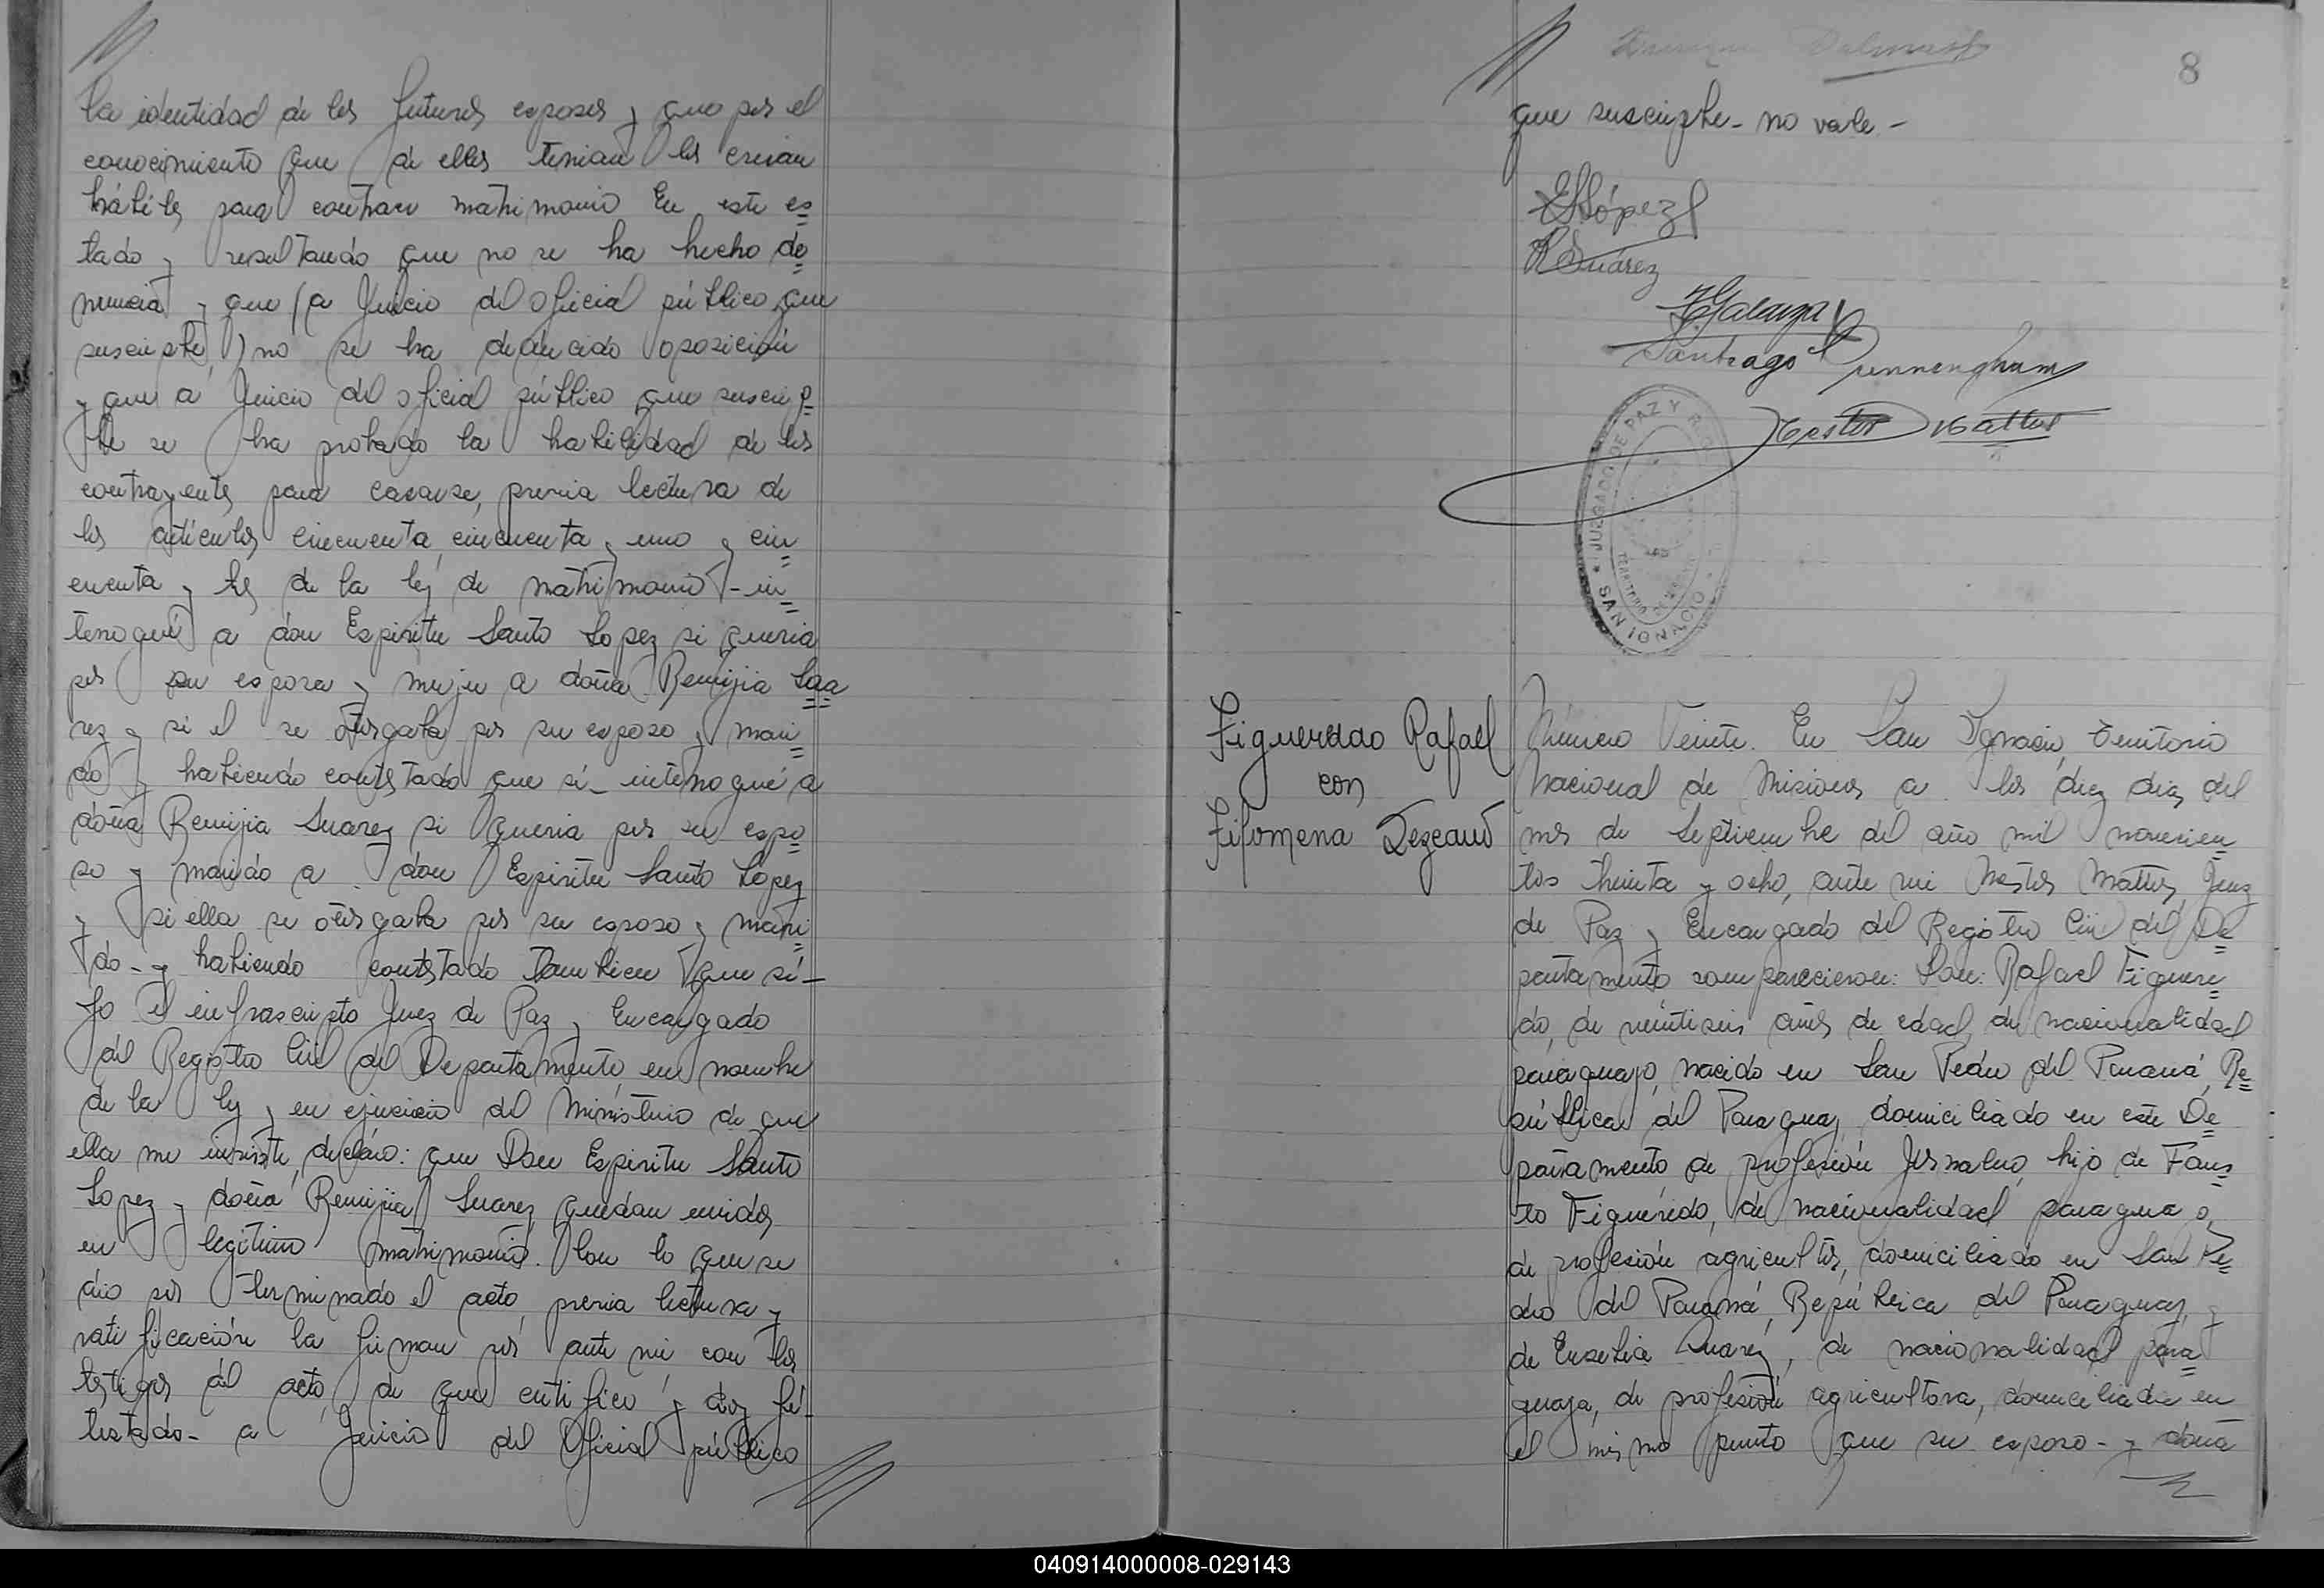 la identidad de los futuros esposos y que por el
conocimiento que de ellos tenian los creian
hábiles para contraer matrimonio En este es=
tado y resultando que no se ha hecho de=
nuncia y que (a Juicio del oficial público que
suscripbe,) no se ha deducido oposición
y que a Juicio del oficial público que suscrip=
be se ha probado la habilidad de los
contrayentes para casarse, previa lectura de
los artículos cincuenta, cincuenta y uno y cin=
cuenta y tres de la ley de matrimonio - in=
terrogué a don Espiritu Santo Lopez si queria
por su esposa y mujer a doña Remijia Sua=
rez y si el se otorgaba por su esposo y mari=
do y habiendo contestado que sí - interrogué a
doña Remijia Suarez si queria por su espo=
so y marido a don Espiritu Santo Lopez
y si ella se otorgaba por su esposo y mari=
do - y habiendo contestado tambien que sí -
Yo el infrascripto Juez de Paz y Encargado
del Registro Civil del Departamento, en nombre
de la ley y en ejercicio del Ministerio de que
ella me inviste, declaro: que Don Espiritu Santo
Lopez y doña Remijia Suarez quedan unidos
en legítimo matrimonio. Con lo que se
dio por terminado el acto, previa lectura y
ratificación la firman por ante mi con los
testigos del acto, de que certifico y doy fé -
testado - a Juicio del Oficial público
8
que suscripbe - no vale -
ESLópez
R Suárez
Galarza
Santiago Cunnengham
Nestor Mattus
JUZGADO DE PAZ Y R.
SAN IGNACIO
Figueredo Rafael
con
Filomena Lezcano
Número Veinte. En San Ignacio, Territorio
Nacional de Misiones a los diez dias del
mes de Septiembre del año mil novecien=
tos treinta y ocho, ante mi Nestor Mattus, Juez
de Paz y Encargado del Registro Civil del De=
partamento comparecieron: Don: Rafael Figuere=
do, de veintiseis años de edad, de nacionalidad
paraguayo, nacido en San Pedro del Paraná, Re=
pública del Paraguay, domiciliado en este De=
partamento de profesión Jornalero, hijo de Faus=
to Figueredo, de nacionalidad paraguayo,
de profesión agricultor, domiciliado en San Pe=
dro del Paraná, República del Paraguay, y
de Eusebia Duarez, de nacionalidad para=
guaya, de profesión agricultora, domiciliada en
el mismo punto que su esposo - y doña
040914000008-029143